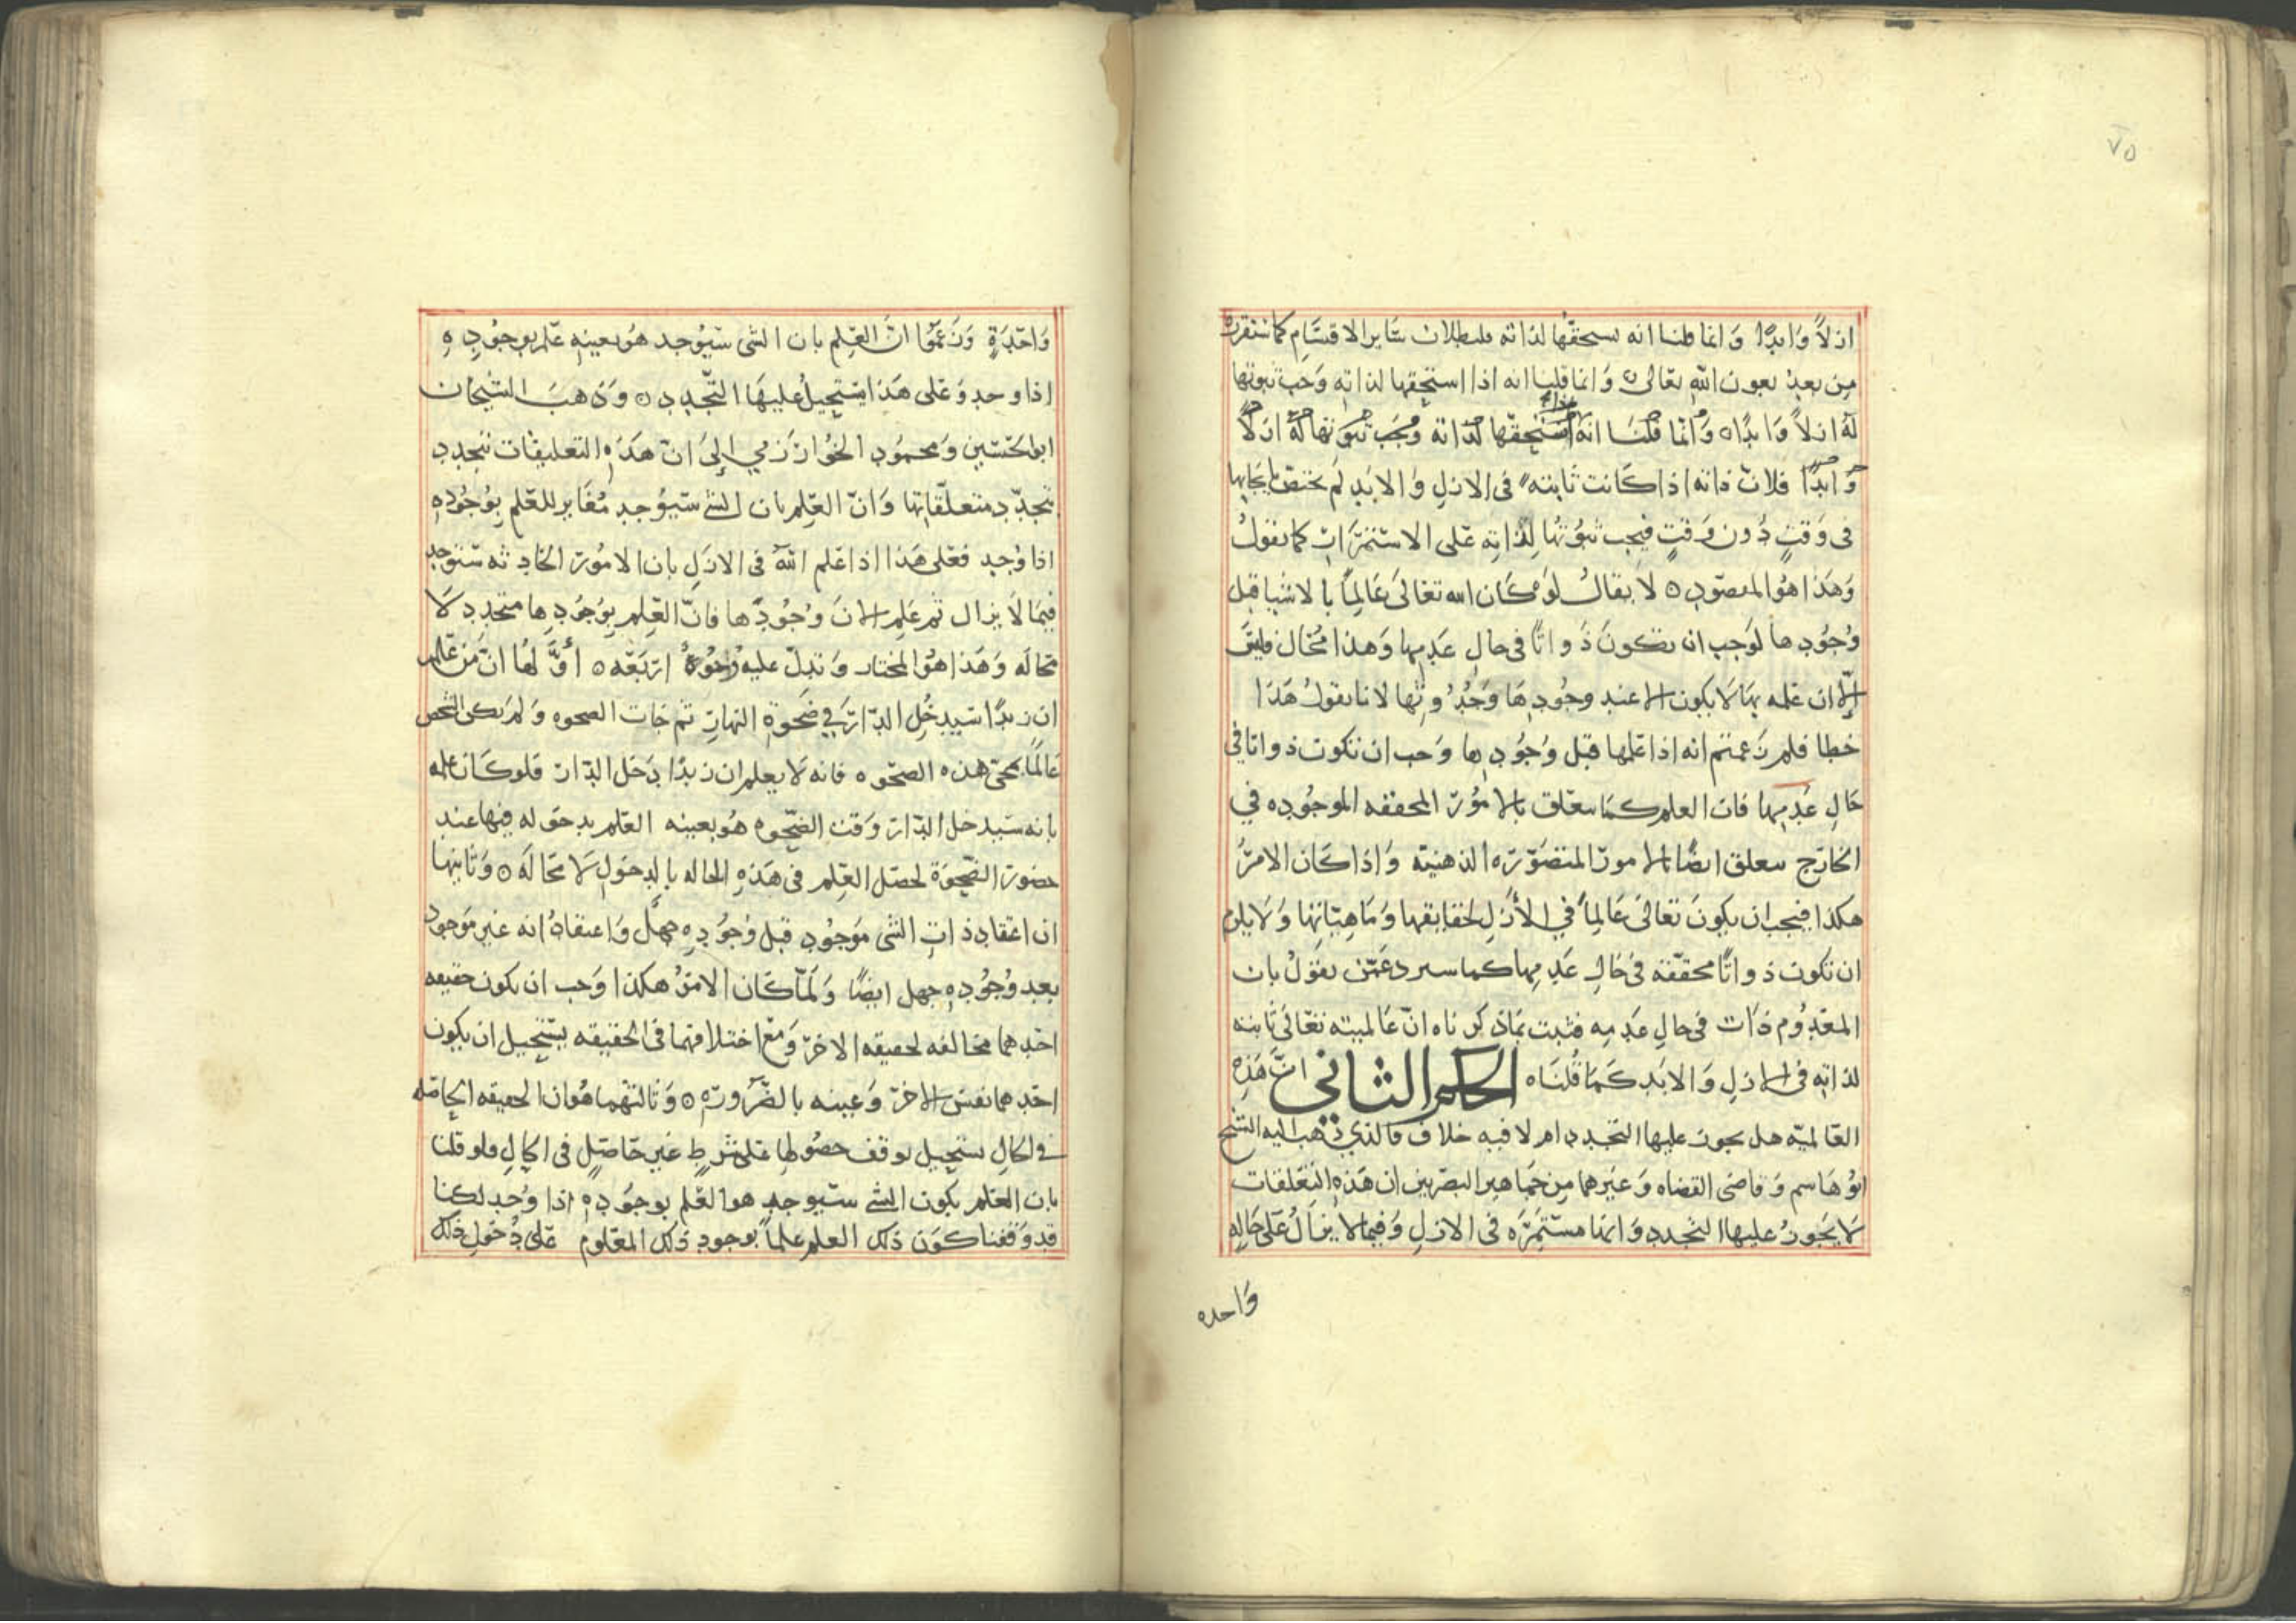 ٧٥
ازلاً وابدًا وانما قلنا انه يستحقها لذاته فلبطلان سائر الاقسام كما سنقرره
من بعد بعون الله تعالى ه وانما قلنا انه اذا استحقها لذاته وجب ثبوتها
له ازلاً وابدًا ه وانما قلنا انه استحقها لذاته وجب ثبوتها له ازلاً
وابدًا فلان ذاته اذا كانت ثابته في الازل والابد لم تختص بايجابها
في وقت دون وقت فيجب ثبوتها لذاته على الاستمرار كما نقول
وهذا هو المقصود ه لا يقال لو كان الله تعالى عالماً بالاشيا قبل
وجودها لوجب ان تكون ذواتًا في حال عدمها وهذا محال فليق
الا ان علمه بها لا يكون الا عند وجودها وحدوثها لانا نقول هذا
خطا فلم زعمتم انه اذا علمها قبل وجودها وجب ان تكون ذواتا في
حال عدمها فان العلم كما يتعلق بالامور المحققه الموجوده في
الخارج يتعلق ايضًا بالامور المتصوره الذهنيه واذا كان الامر
هكذا فيجب ان يكون تعالى عالماً في الازل لحقايقها وماهياتها ولا يلزم
ان تكون ذواتًا محققه في حال عدمها كما سيرد عمن يقول بان
المعدوم ذات في حال عدمه فثبت بما ذكرناه ان عالميته تعالى ثابته
لذاته في الازل والابد كما قلناه الحكم الثاني ان هذه
العالميه هل يجوز عليها التجدد ام لا فيه خلاف فالذي ذهب اليه الشيخ
ابو هاشم وقاضي القضاه وغيرهما من جماهير البصريين ان هذه التعلقات
لا يجوز عليها التجدد وانها مستمره في الازل وفيما لا يزال على حاله
واحده
واحدةٍ وزعموا ان العلم بان الشى سيوجد هو بعينه علم بوجوده
اذا وجد وعلى هذا يستحيل عليها التجدد ه وذهب الشيخان
ابو الحسين ومحمود الخوارزمي الى ان هذه التعليقات تتجدد
بتجدد متعلقاتها وان العلم بان الشي سيوجد مغاير للعلم بوجوده
اذا وجد فعلى هذا اذا علم الله في الازل بان الامور الحادثه ستوجد
فيما لا يزال ثم علم الان وجودها فان العلم بوجودها متجدد لا
محاله وهذا هو المختار وتدل عليه وجوه اربعه ه اولها ان من علم
ان زيدًا سيدخل الدار في ضحوة النهار ثم جات الضحوه ولم يكن الشخص
عالماً بمجى هذه الضحوه فانه لا يعلم ان زيدًا دخل الدار فلو كان علمه
بانه سيدخل الدار وقت الضحوه هو بعينه العلم بدخوله فيها عند
حضور الضحوة لحصل العلم في هذه الحاله بالدخول لا محاله ه وثانيها
ان اعتقاد ذات الشى موجود قبل وجوده جهل واعتقاد انه غير موجود
بعد وجوده جهل ايضًا ولما كان الامر هكذا وجب ان يكون حقيقه
احدهما مخالفه لحقيقه الاخر ومع اختلافهما في الحقيقه يستحيل ان يكون
احدهما نفس الاخر وعينه بالضروره ه وثالثهما هو ان الحقيقه الحاصله
في الحال يستحيل توقف حصولها على شرط غير حاصل في الحال فلو قلنا
بان العلم بكون الشي سيوجد هو العلم بوجوده اذا وجد لكنا
قد وقفنا كون ذلك العلم علماً بوجود ذلك المعلوم على دخول ذلك